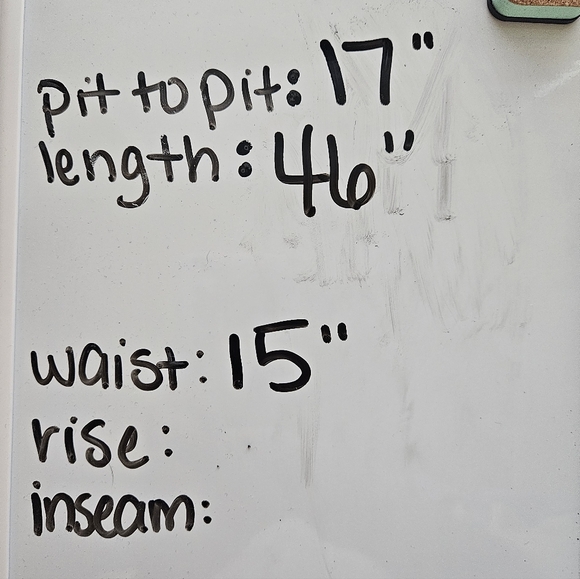 pit to pit: 17"
length: 46"
waist: 15"
rise:
inseam: